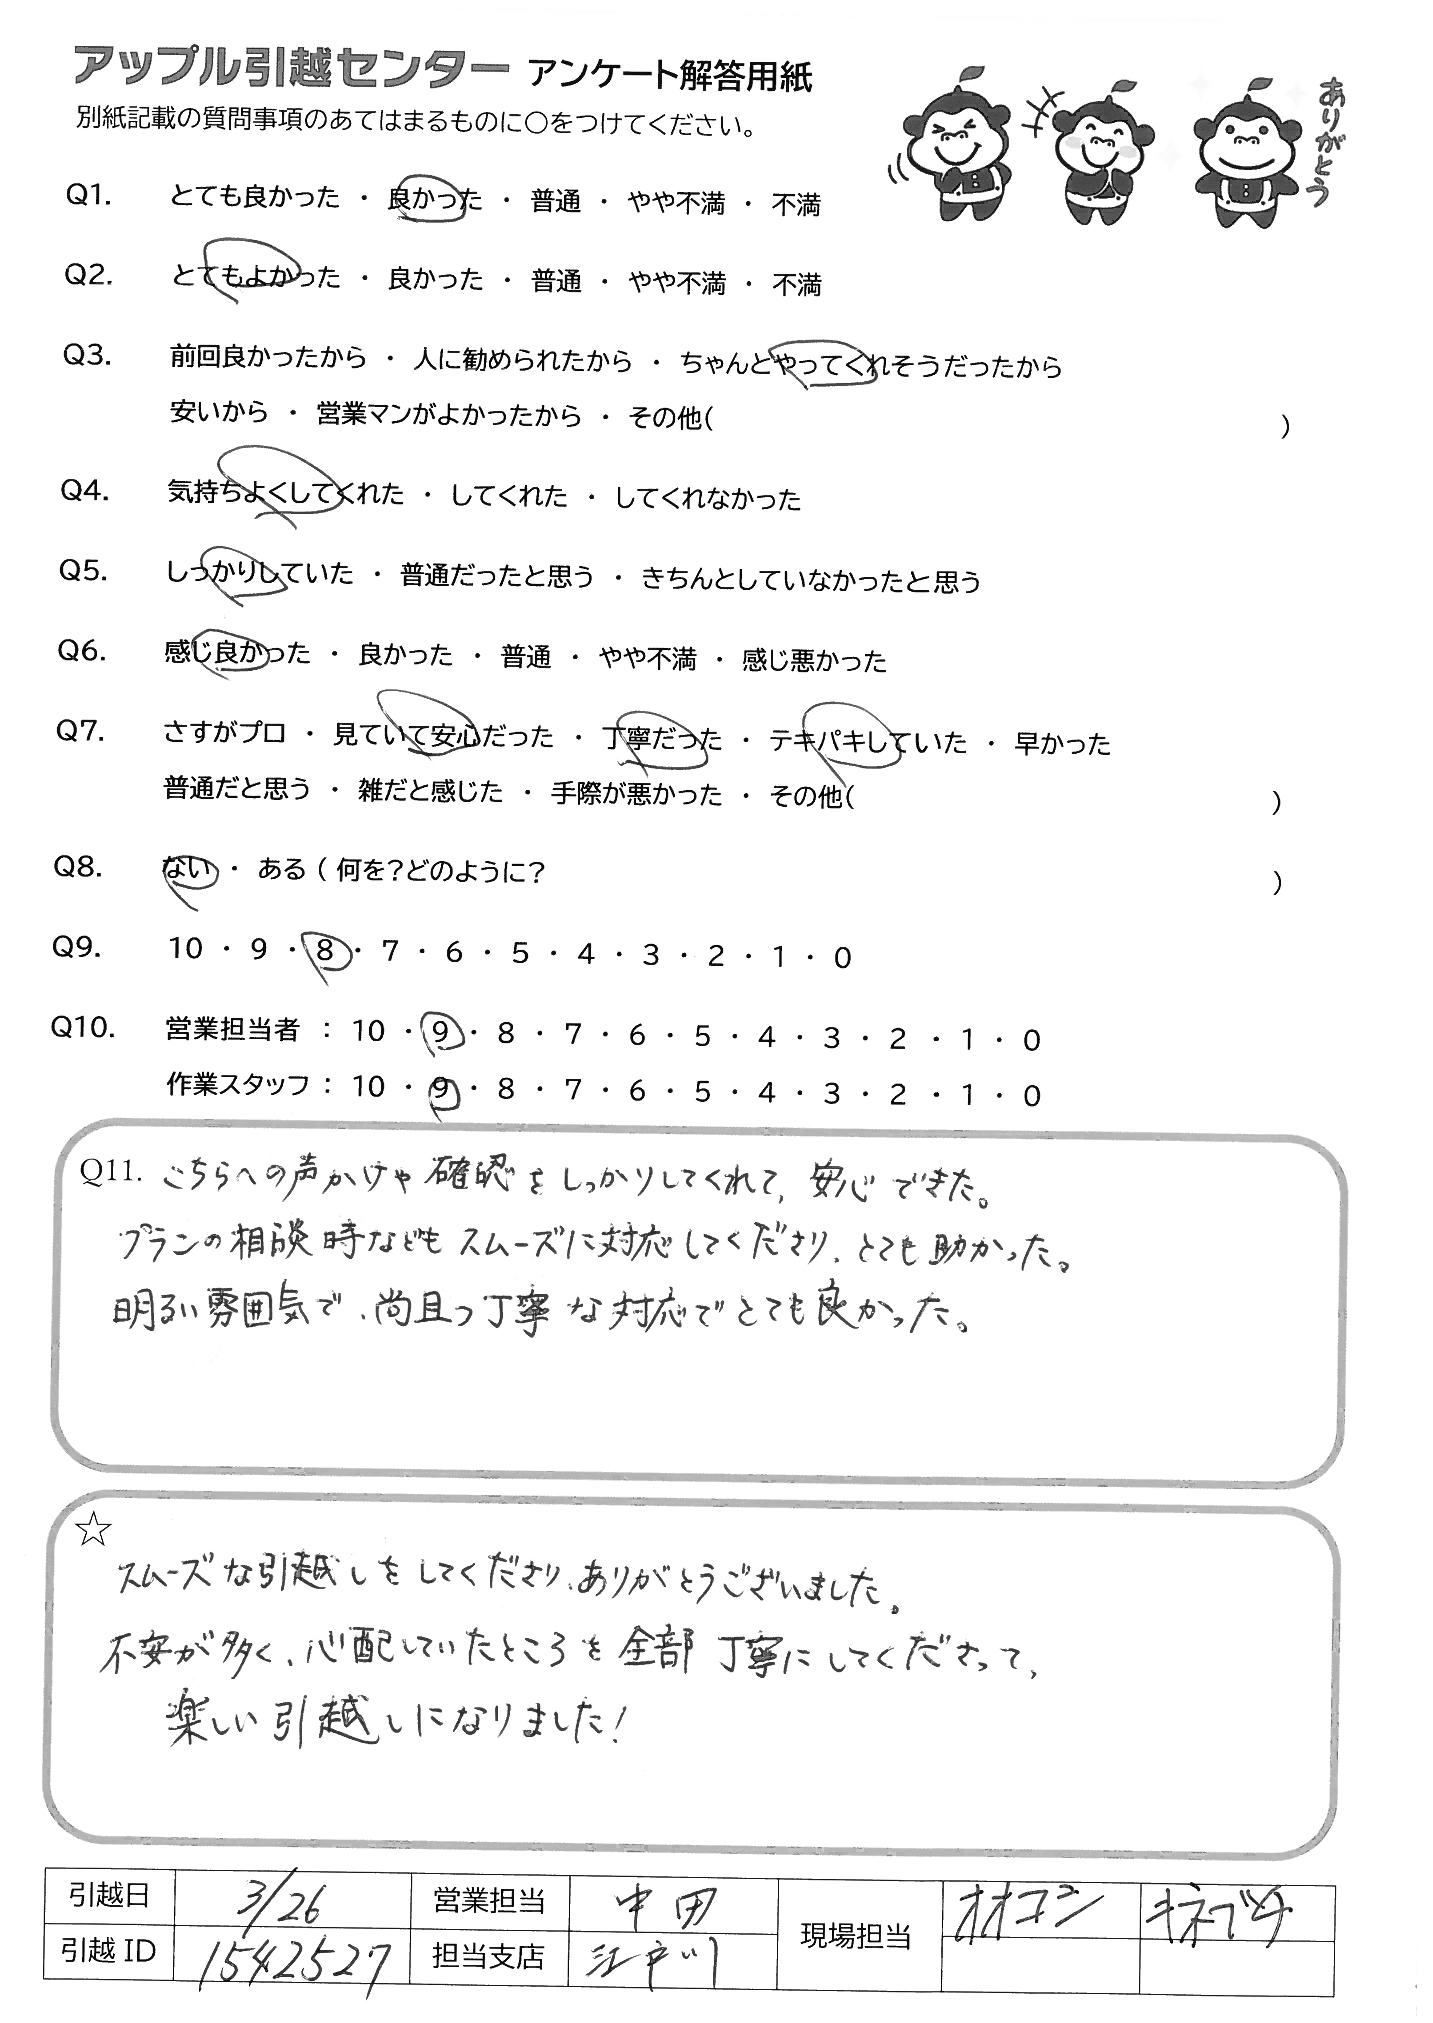 アップル引越センター アンケート解答用紙
別紙記載の質問事項のあてはまるものに○をつけてください。
ありがとう
Q1. とても良かった ・ 良かった ・ 普通 ・ やや不満 ・ 不満
Q2. とてもよかった ・ 良かった ・ 普通 ・ やや不満 ・ 不満
Q3. 前回良かったから ・ 人に勧められたから ・ ちゃんとやってくれそうだったから
安いから ・ 営業マンがよかったから ・ その他( )
Q4. 気持ちよくしてくれた ・ してくれた ・ してくれなかった
Q5. しっかりしていた ・ 普通だったと思う ・ きちんとしていなかったと思う
Q6. 感じ良かった ・ 良かった ・ 普通 ・ やや不満 ・ 感じ悪かった
Q7. さすがプロ ・ 見ていて安心だった ・ 丁寧だった ・ テキパキしていた ・ 早かった
普通だと思う ・ 雑だと感じた ・ 手際が悪かった ・ その他( )
Q8. ない ・ ある ( 何を?どのように? )
Q9. 10 ・ 9 ・ 8 ・ 7 ・ 6 ・ 5 ・ 4 ・ 3 ・ 2 ・ 1 ・ 0
Q10. 営業担当者 : 10 ・ 9 ・ 8 ・ 7 ・ 6 ・ 5 ・ 4 ・ 3 ・ 2 ・ 1 ・ 0
作業スタッフ : 10 ・ 9 ・ 8 ・ 7 ・ 6 ・ 5 ・ 4 ・ 3 ・ 2 ・ 1 ・ 0
Q11. こちらへの声かけや確認をしっかりしてくれて、安心できた。
プランの相談時などもスムーズに対応してくださり、とても助かった。
明るい雰囲気で、尚且つ丁寧な対応でとても良かった。
☆
スムーズな引越しをしてくださり、ありがとうございました。
不安が多く、心配していたところを全部丁寧にしてくださって、
楽しい引越しになりました!
引越日 3/26 営業担当 中田 現場担当 オオコシ
引越ID 1542527 担当支店 江戸川